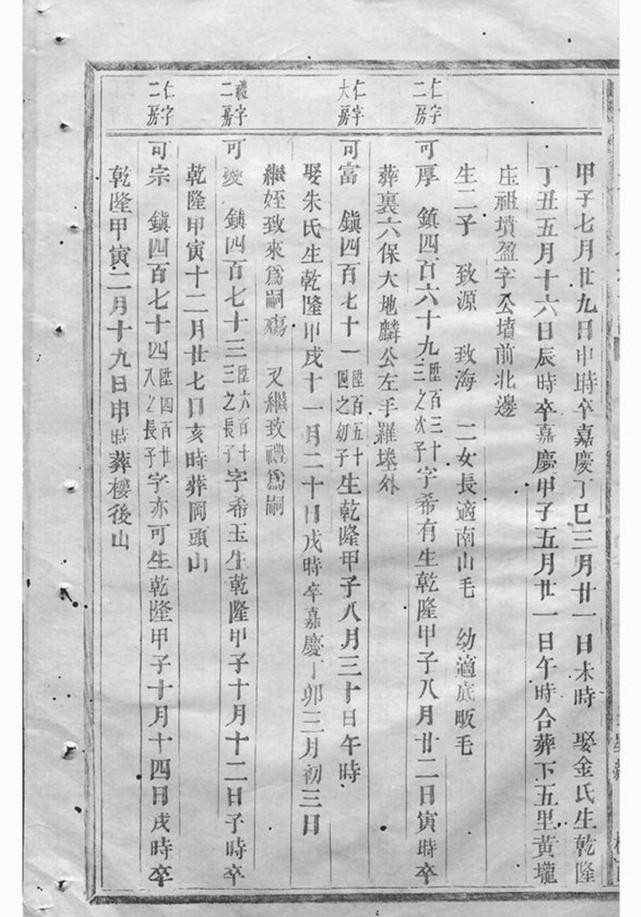 甲子七月廿九日申時卒嘉慶丁巳三月廿一日未時 娶金氏生乾隆
丁丑五月十六日辰時卒嘉慶甲子五月廿一日午時合葬下五里黃壠
庄祖墳盈字公墳前北邊
生二子 致源 致海 二女長適南山毛 幼適底畈毛
仁字二房
可厚 鎮四百六十九陞百三十三之次子字希有生乾隆甲子八月廿二日寅時卒
葬裏六保大地麟公左手羅墶外
仁字大房
可富 鎮四百七十一陞百五十四之幼子生乾隆甲子八月三十日午時
娶朱氏生乾隆甲戌十一月二十日戌時卒嘉慶丁卯三月初三日
繼姪致來爲嗣殤 又繼致禮爲嗣
禮字二房
可愛 鎮四百七十三陞六百十三之長子字希玉生乾隆甲子十月十二日子時卒
乾隆甲寅十二月廿七日亥時葬岡頭山
仁字二房
可宗 鎮四百七十四陞四百廿八之長子字亦可生乾隆甲子十月十四日戌時卒
乾隆甲寅二月十九日申時葬樓後山